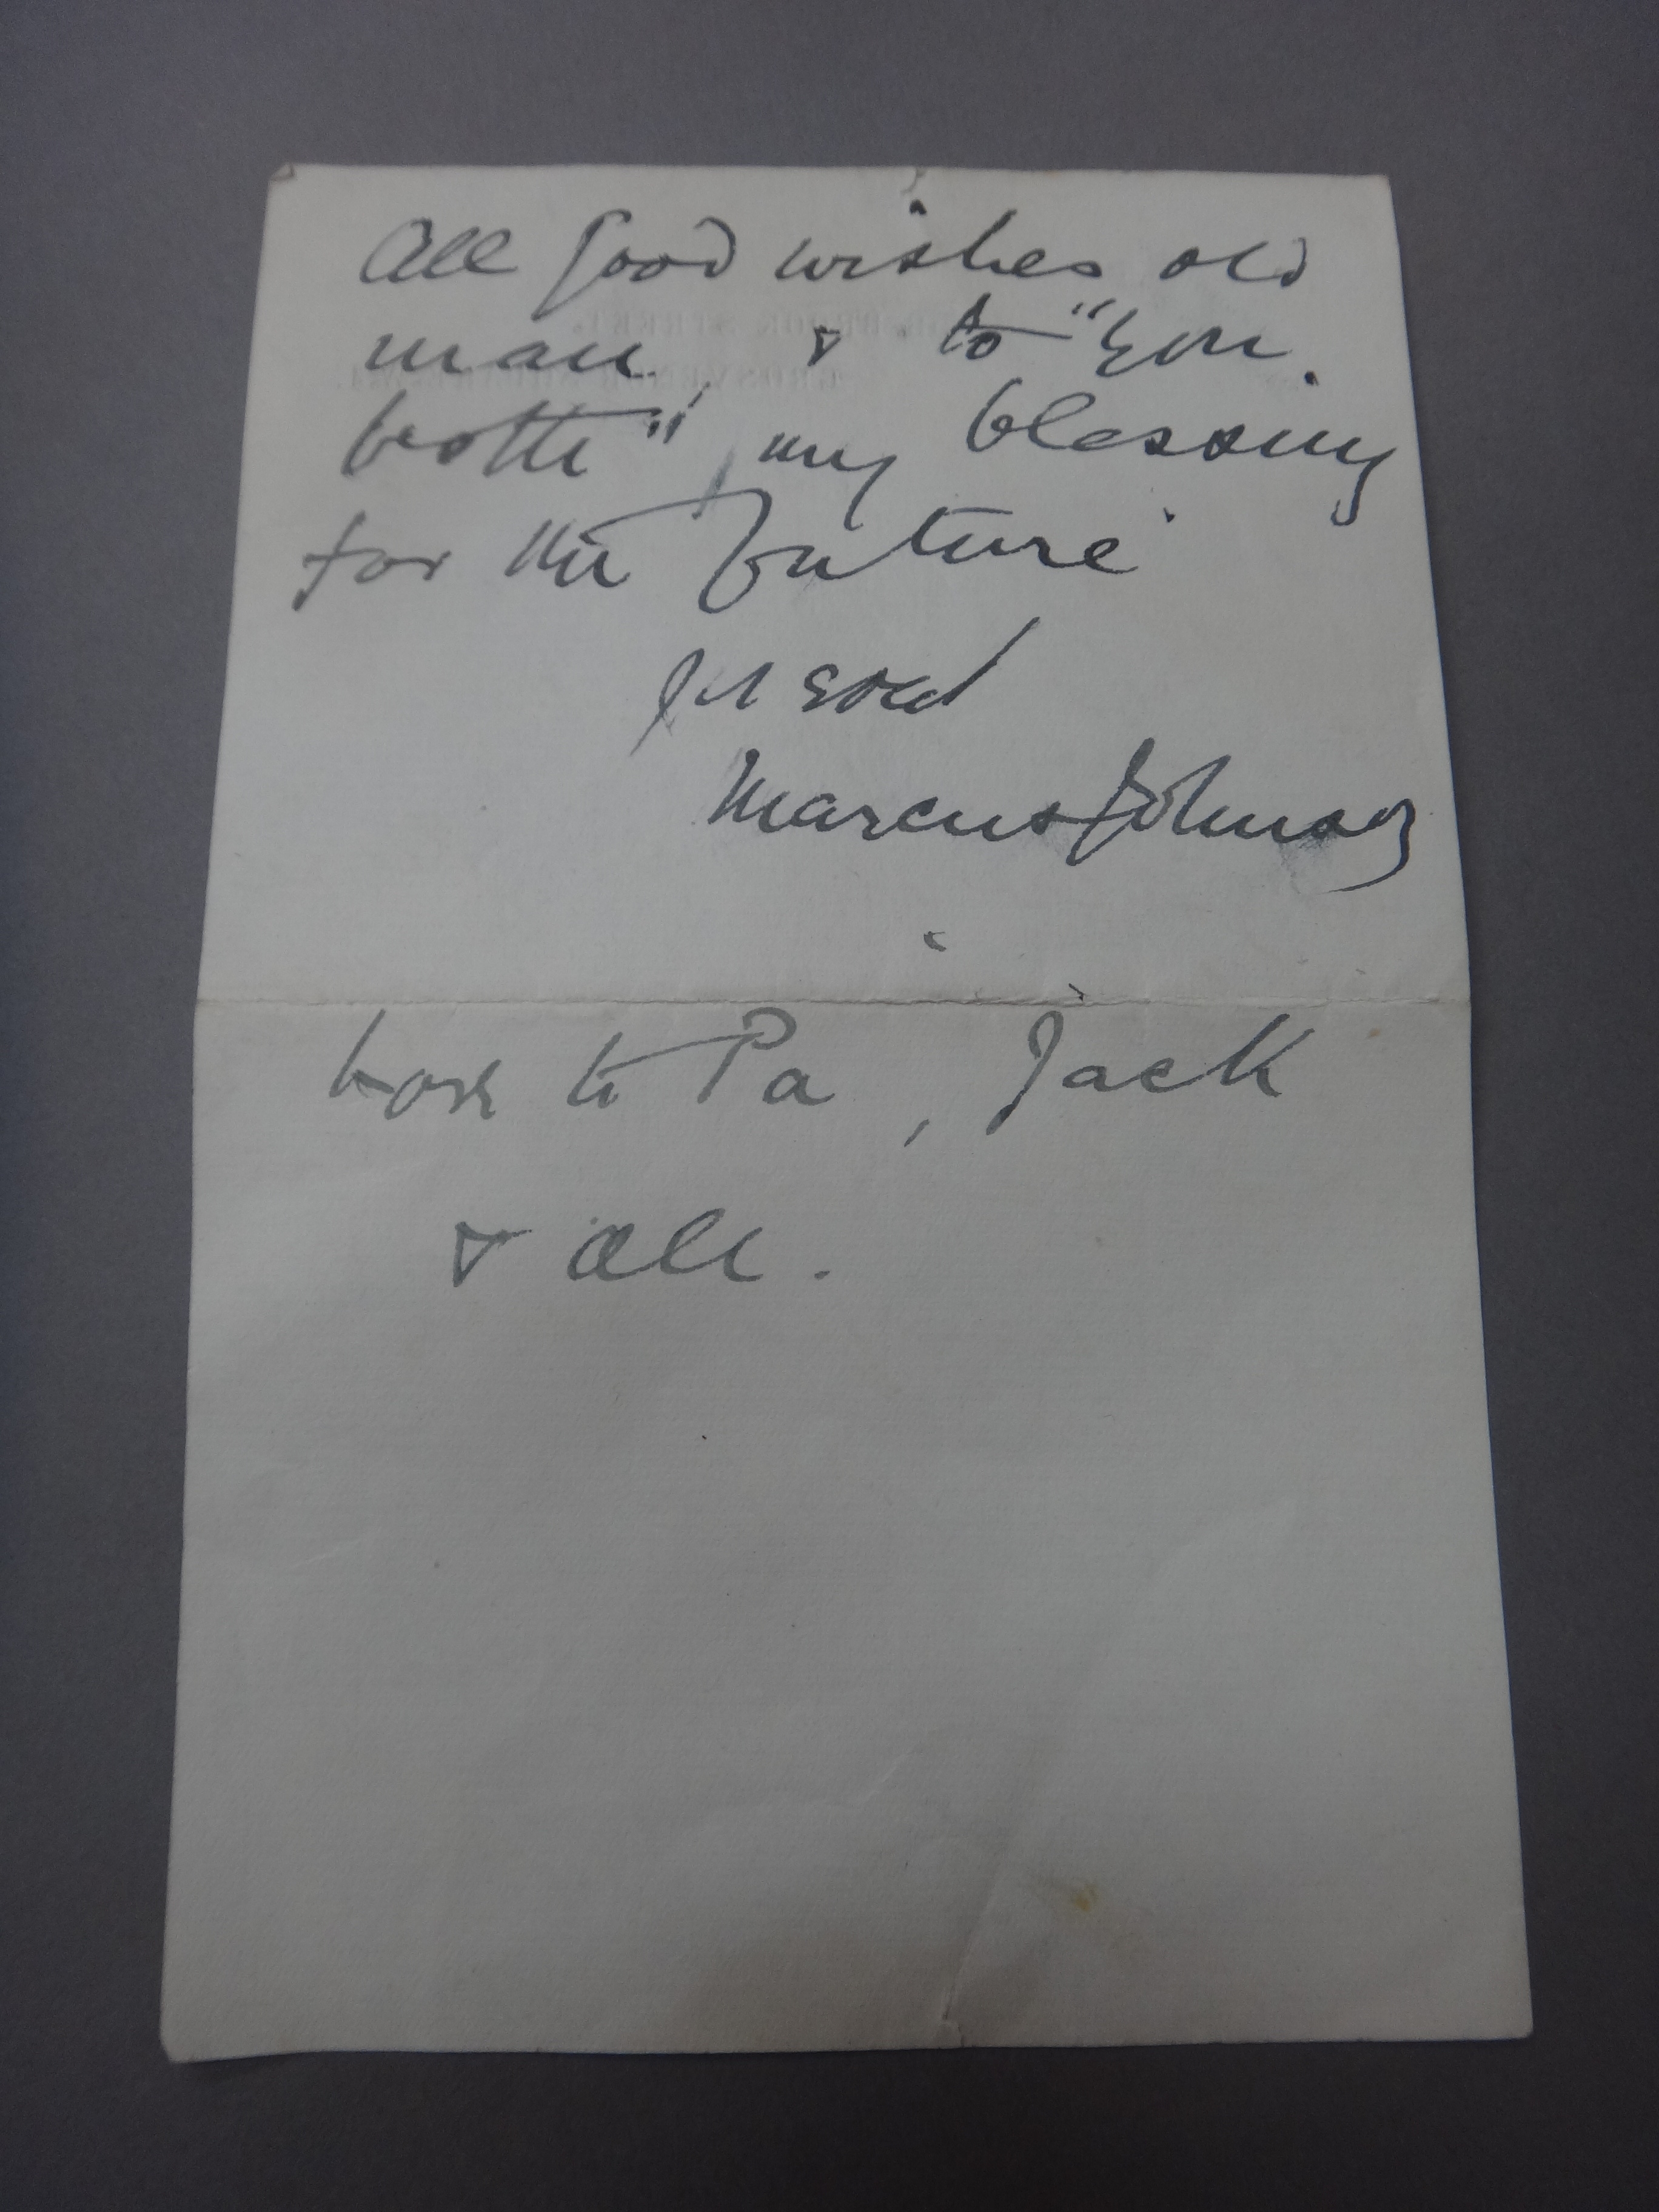 All good wishes old
man & to "you
both", my blessing
for the Future
Marcus Johnson
Love to Pa, Jack
& all.